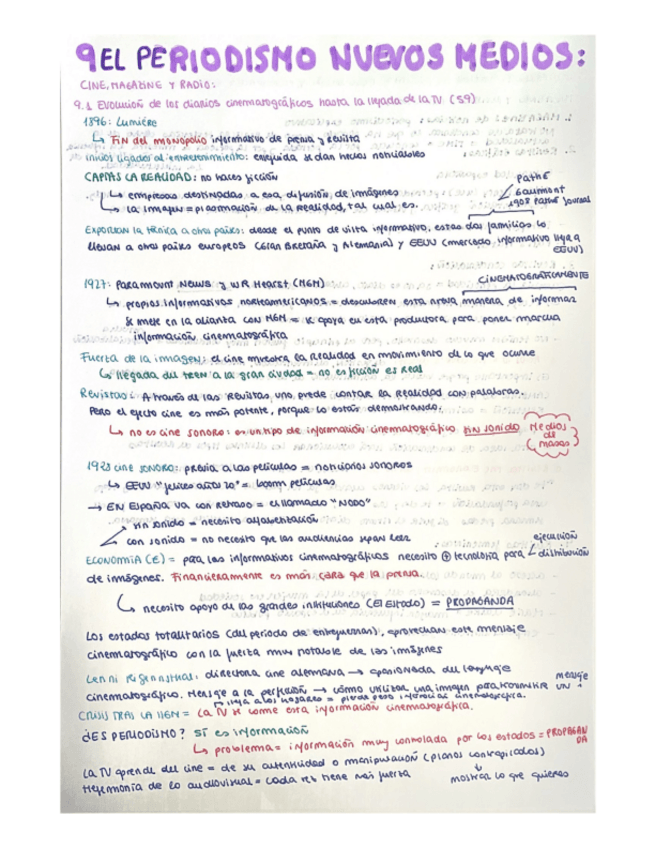 9 EL PERIODISMO NUEVOS MEDIOS:
CINE, MAGAZINE Y RADIO:
9.1 Evolución de los diarios cinematográficos hasta la llegada de la TV. (59)
1896: Lumiére
↳ FIN del monopolio informativo de prensa y revista
inicios ligados al entretenimiento: enseguida se dan hechos noticiables
CAPTAS LA REALIDAD: no haces ficción
↳ empresas destinadas a esa difusión de imágenes
↳ la imagen = plasmación de la realidad, tal cual es.
Pathé
Gaumont
1908 Pathé Journal
EXPORTAN la técnica a otros países: desde el punto de vista informativo, estas dos familias lo
llevan a otros países europeos (Gran Bretaña y Alemania) y EEUU (mercado informativo
EEUU)
1927: Paramount News y WR Hearst (MGM)
CINEMATOGRÁFICAMENTE
↳ propios informativos norteamericanos = descubren esta nueva manera de informar
Se mete en la alianza con MGM = se apoya en esta productora para poner marcha
información cinematográfica
Fuerza de la imagen: el cine muestra la realidad en movimiento de lo que ocurre
↳ llegada del tren a la gran ciudad = no es ficción es real
Revistas: A través de las revistas uno puede contar la realidad con palabras.
Pero el efecto cine es más potente, porque lo estás demostrando.
↳ no es cine sonoro: es un tipo de información cinematográfico sin sonido
Medios
de
masas
1923 cine sonoro: previa a las películas = noticiarios sonoros
↳ EEUU "felices años 20" = boom películas
→ EN España va con retraso = el llamado "NODO"
sin sonido = necesito alfabetización
con sonido = no necesito que las audiencias sepan leer
ECONOMÍA (€) = para los informativos cinematográficas necesito ⊕ tecnología para
ejecución
distribución
de imágenes. Financieramente es más cara que la prensa.
↳ necesito apoyo de las grandes instituciones (El Estado) = PROPAGANDA
Los estados totalitarios (del periodo de entreguerras), aprovechan este mensaje
cinematográfico con la fuerza muy notable de las imágenes
Lenni Rifennsthal: directora cine alemana → apasionada del lenguaje
cinematográfico. Mensaje a la perfección → cómo utilizar una imagen para transmitir un
mensaje
↱ llega a los hogares = pierde peso informativo cinematográfica.
CRISIS TRAS LA IIGM = la TV se come esta información cinematográfica.
¿ES PERIODISMO? sí es información
↳ problema = información muy controlada por los estados = PROPAGAN
DA
La TV aprende del cine = de su autenticidad o manipulación (planos contrapicados)
Hegemonía de lo audiovisual = cada vez tiene más fuerza
mostrar lo que quieres